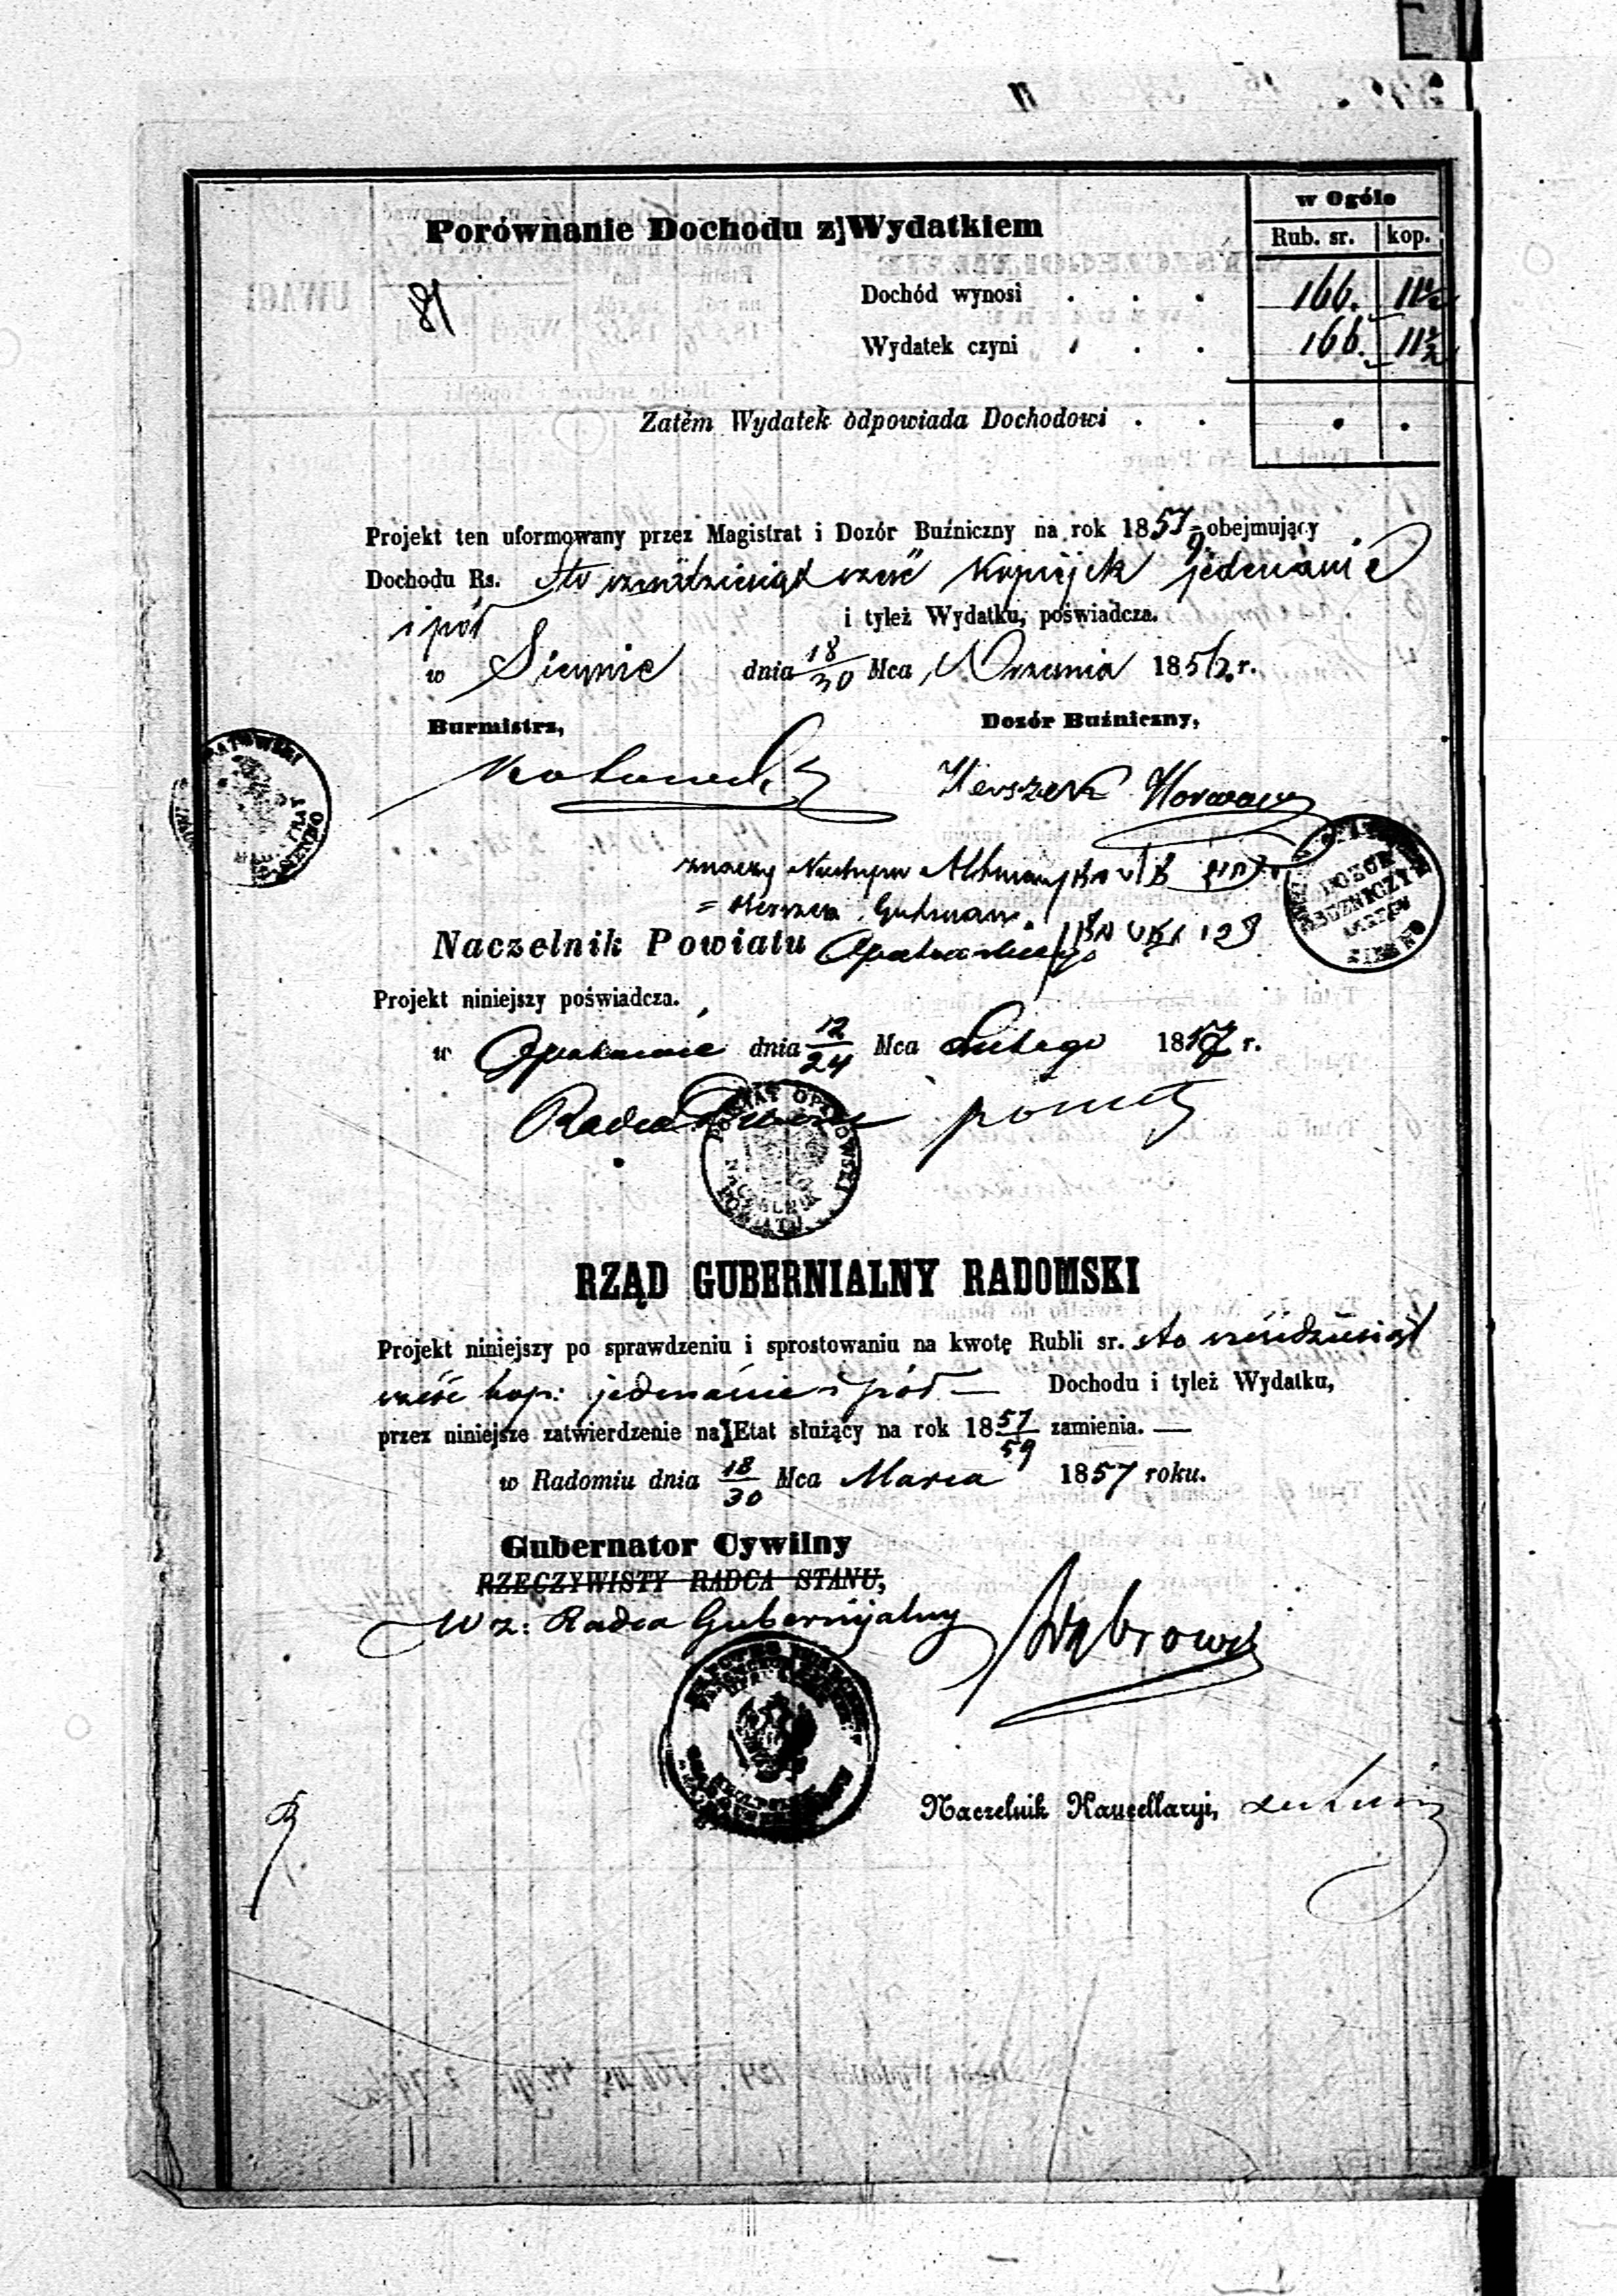 w Ogóle
Porównanie Dochodu z Wydatkiem
Rub. sr. kop.
81
Dochód wynosi . . . 166. 11½
Wydatek czyni . . . 166. 11½
Zatém Wydatek odpowiada Dochodowi . .
Projekt ten uformowany przez Magistrat i Dozór Buźniczny na rok 1857/9 obejmujący
Dochodu Rs. Sto sześćdziesiąt sześć kopiejek jedenaście
i pół
i tyleż Wydatku, poświadcza.
w Siennie dnia 18/30 Mca Września 1856 r.
Burmistrz, Dozór Buźniczny,
Herszek
znaczy Nuchym Altman
= Herszek Gutman
Naczelnik Powiatu Opatowskiego
Projekt niniejszy poświadcza.
w Opatowie dnia 12/24 Mca Lutego 1857 r.
Radca Dworu
POWIAT OPATOWSKI
NACZELNIK POWIATU
DOZÓR
BUZNICZY
RZĄD GUBERNIALNY RADOMSKI
Projekt niniejszy po sprawdzeniu i sprostowaniu na kwotę Rubli sr. sto sześćdziesiąt
sześć kop: jedenaście i pół — Dochodu i tyleż Wydatku,
przez niniejsze zatwierdzenie na Etat służący na rok 1857/59 zamienia. —
w Radomiu dnia 18/30 Mca Marca 1857 roku.
Gubernator Cywilny
RZECZYWISTY RADCA STANU,
W z: Radca Gubernijalny
Naczelnik Kancellaryi,